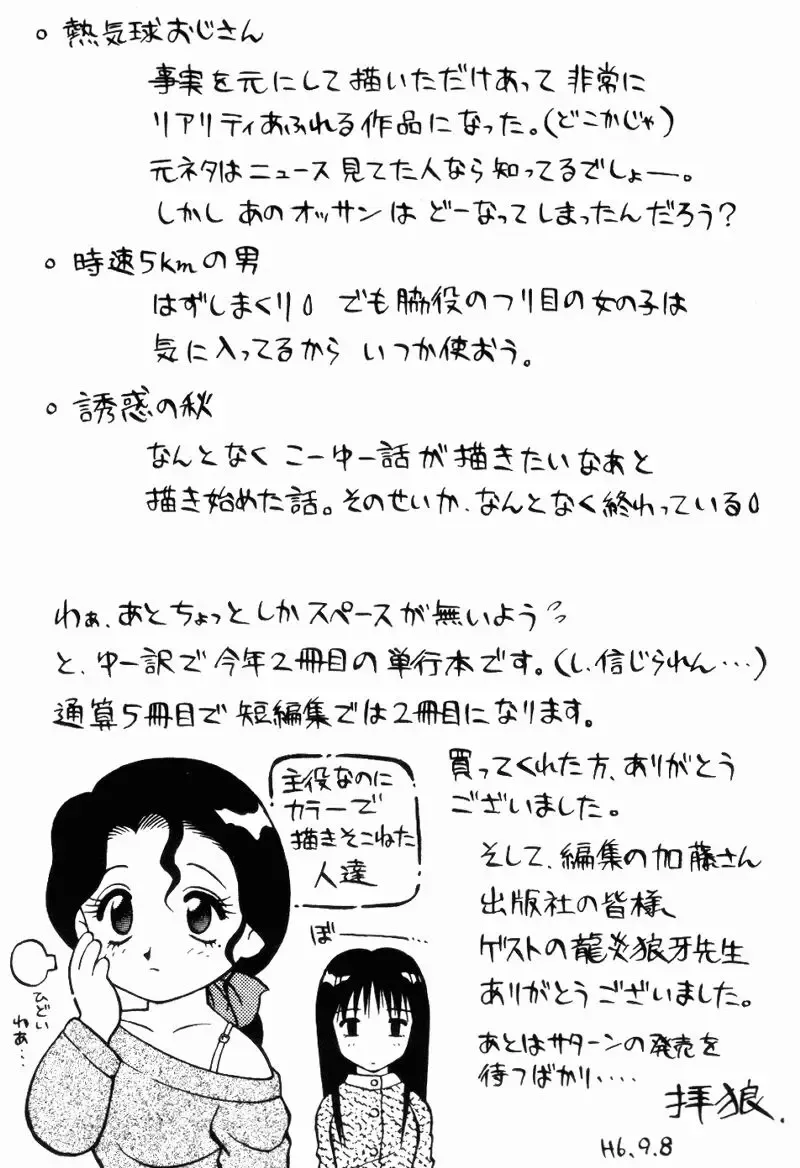 ○ 熱気球おじさん
事実を元にして描いただけあって 非常に
リアリティあふれる作品になった。(どこかじゃ)
元ネタはニュース見てた人なら知ってるでしょー。
しかし あのオッサンは どーなってしまったんだろう?
○ 時速5kmの男
はずしまくり でも脇役のつり目の女の子は
気に入ってるから いつか使おう。
○ 誘惑の秋
なんとなく こーゆー話が描きたいなあと
描き始めた話。そのせいか、なんとなく終わっている
わぁ、あとちょっとしかスペースが無いよう
と、ゆー訳で今年2冊目の単行本です。(し、信じられん…)
通算5冊目で 短編集では2冊目になります。
主役なのに
カラーで
描きそこねた
人達
買ってくれた方、ありがとう
ございました。
そして、編集の加藤さん
出版社の皆様、
ゲストの龍炎狼牙先生
ありがとうございました。
あとはサターンの発売を
待つばかり‥‥
拝狼.
H6.9.8
ぼー
ひどい
わぁ…